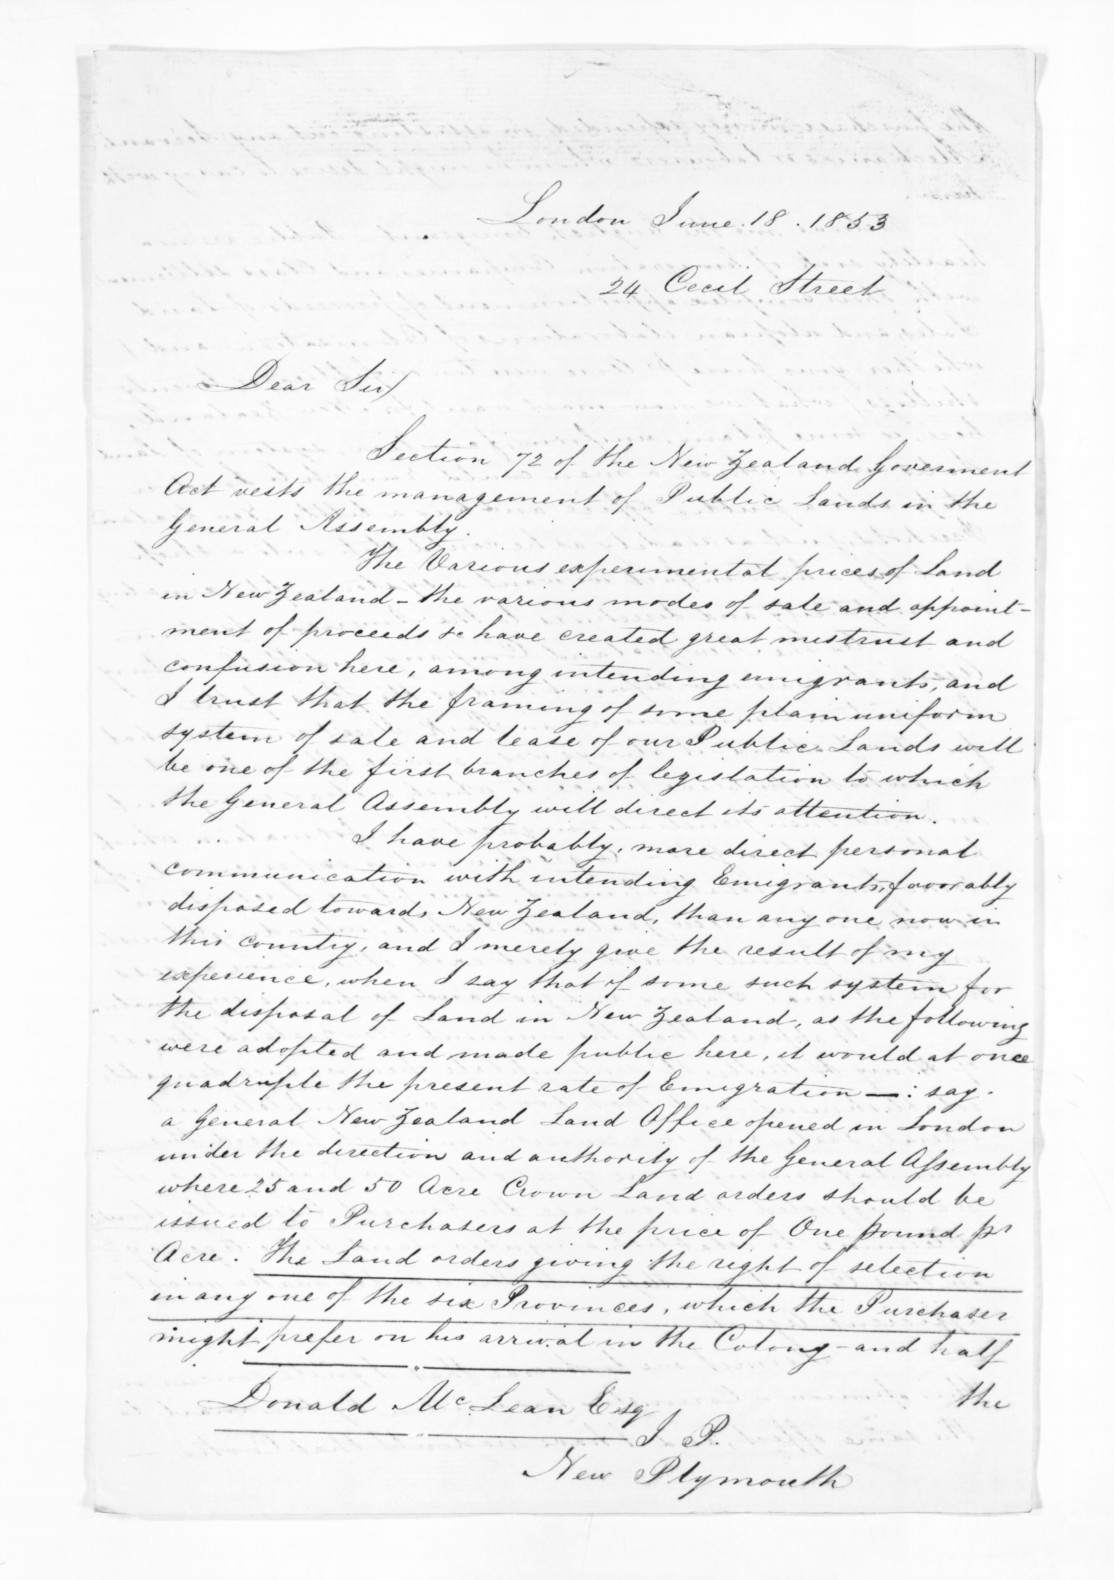 London June. 18. 1853
24 Cecil Street
Dear Sir/
Section 72 of the New Zealand Goverment
Act vests the management of Public Lands in the
General Assembly.
The Various experimental prices of Land
in New Zealand - the various modes of sale and appoint-
ment of proceeds &c have created great mistrust and
confusion here, among intending emigrants, and
I trust that the framing of some plain uniform
system of sale and lease of our Public Lands will
be one of the first branches of legislation to which
the General Assembly will direct its attention.
I have probably, more direct personal
communication with intending Emigrants, favorably
disposed towards New Zealand, than any one now in
this country, and I merely give the result of my
experience, when I say that if some such system for
the disposal of Land in New Zealand, as the following
were adopted and made public here, it would at once
quadruple the present rate of Emigration —: say.
a General New Zealand Land Office opened in London
under the direction and authority of the General Assembly
where 25 and 50 Acre Crown Land orders should be
issued to Purchasers at the price of One pound pr
Acre. The Land orders giving the right of selection
in any one of the six Provinces, which the Purchaser
might prefer on his arrival in the Colony - and half
the
Donald McLean Esq
J P.
New Plymouth